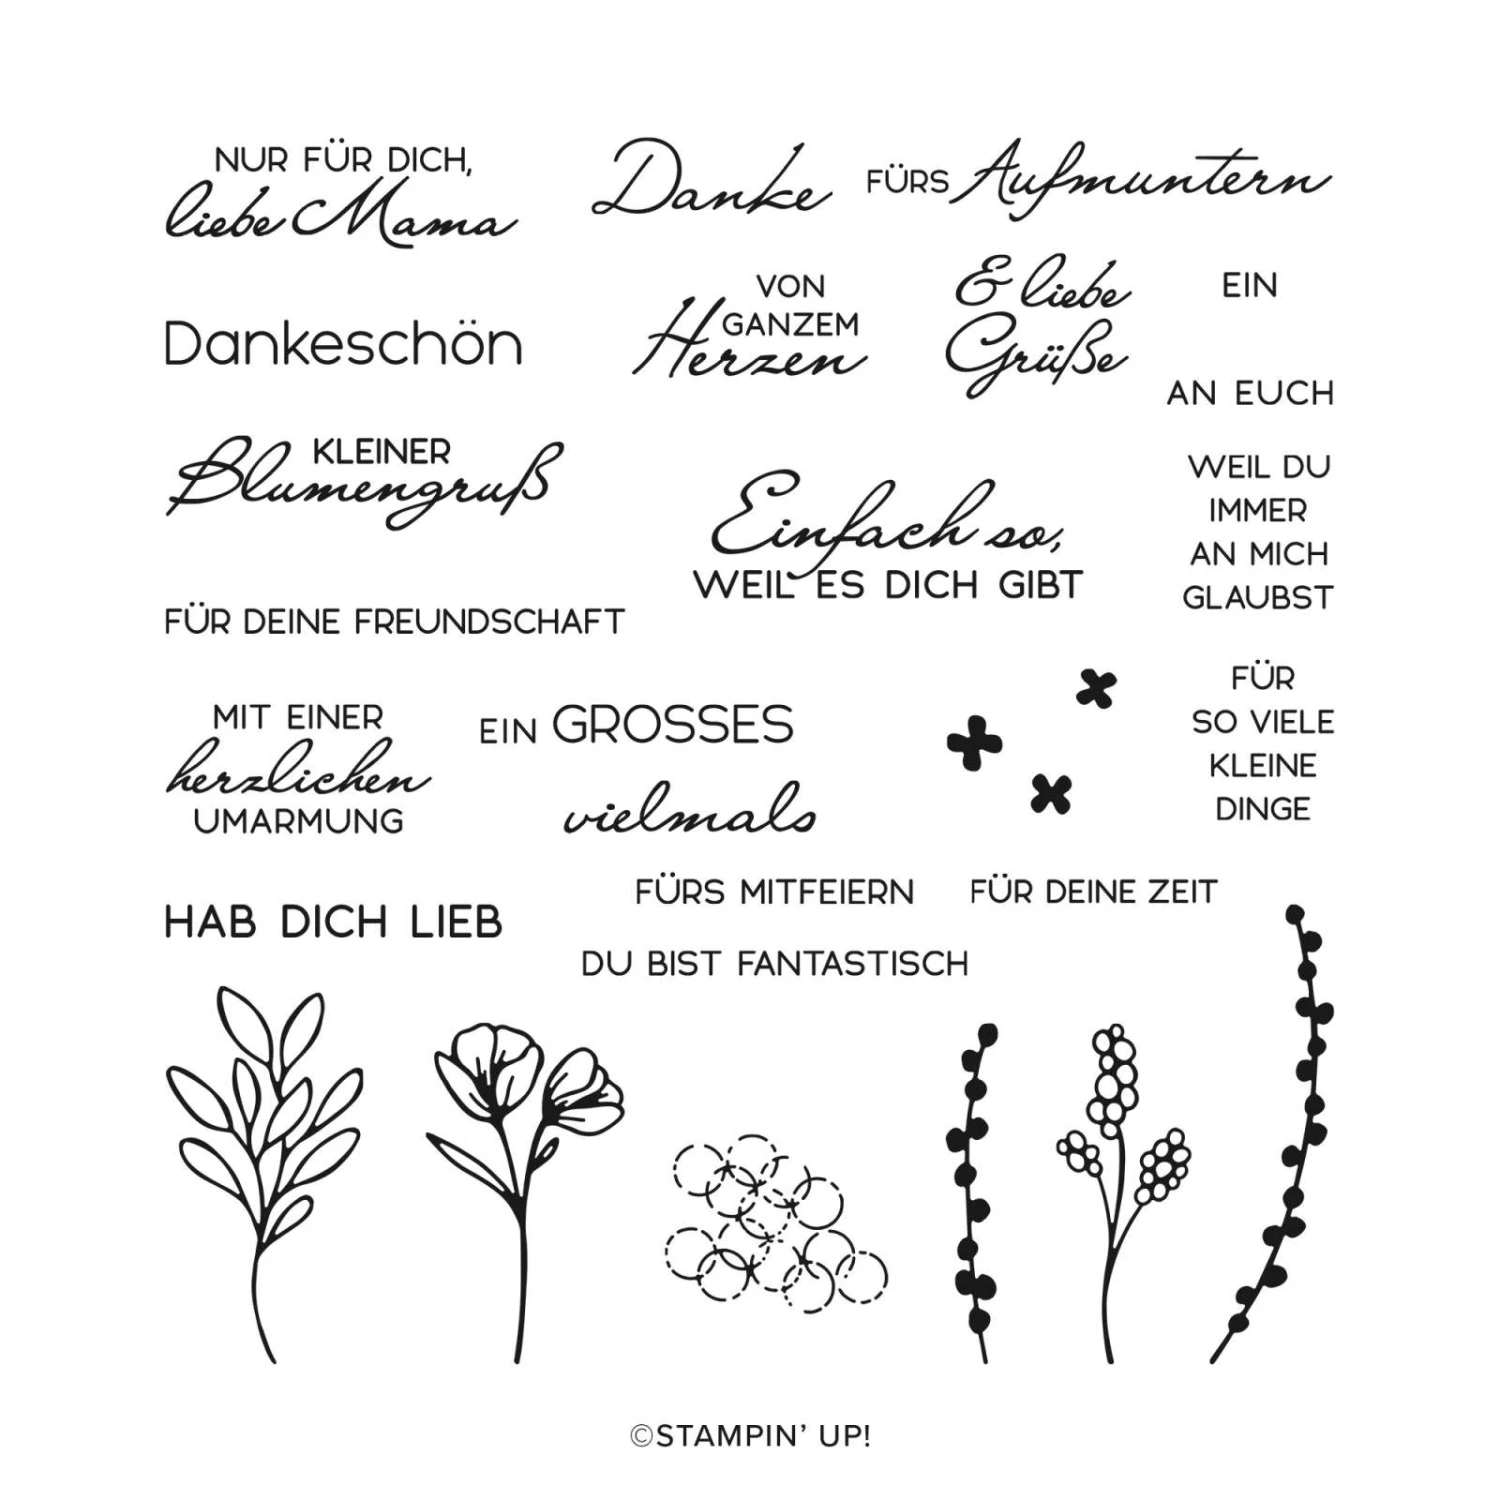 NUR FÜR DICH,
liebe Mama
Danke
FÜRS Aufmuntern
Dankeschön
VON
GANZEM
Herzen
& liebe
Grüße
EIN
AN EUCH
KLEINER
Blumengruß
Einfach so,
WEIL ES DICH GIBT
WEIL DU
IMMER
AN MICH
GLAUBST
FÜR DEINE FREUNDSCHAFT
MIT EINER
herzlichen
UMARMUNG
EIN GROSSES
vielmals
FÜR
SO VIELE
KLEINE
DINGE
HAB DICH LIEB
FÜRS MITFEIERN
FÜR DEINE ZEIT
DU BIST FANTASTISCH
©STAMPIN’ UP!